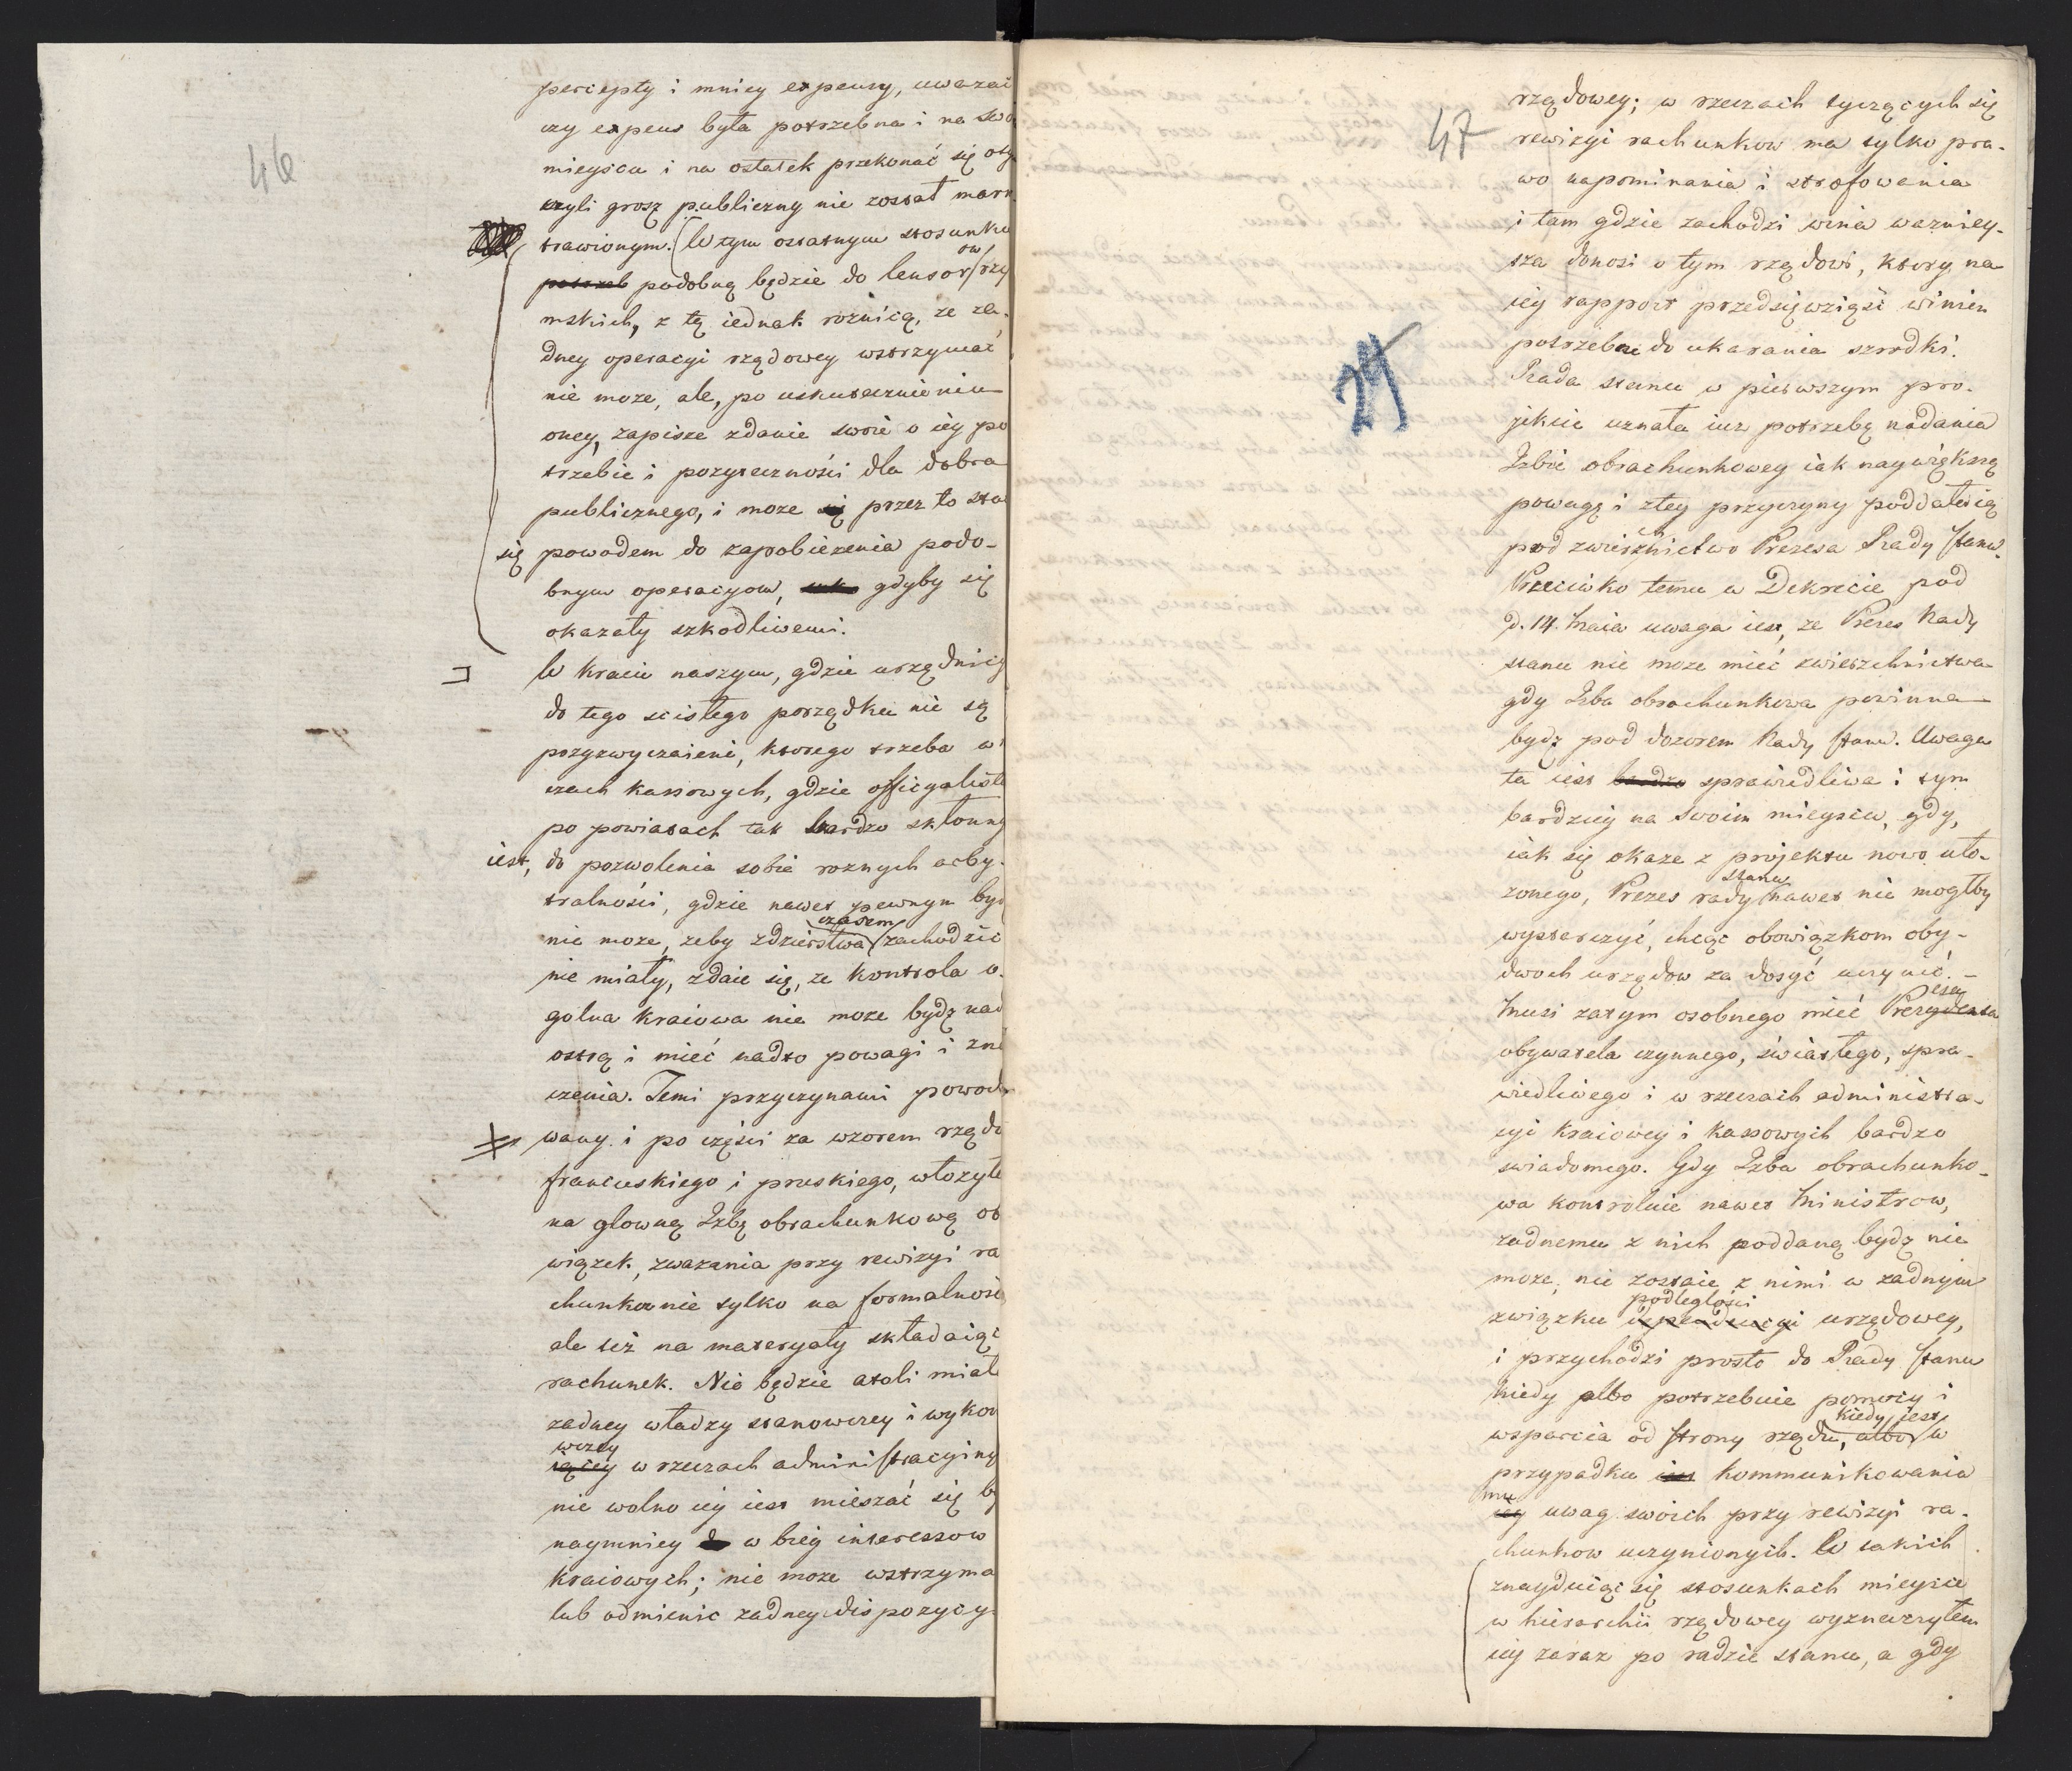 46
percepty i mniey expensy, uwazać
czy expens była potrzebna i na swo
mieyscu i na ostatek przekonać się
czyli grosz publiczny nie został marn
trawionym. (W tym ostatnym stosunku
potrzeb podobną będzie do Censorow rzy
mskich, z tą iednak roznicą, ze za-
dney operacyi rządowey wstrzymać
nie moze, ale, po uskutecznieniu
oney, zapisze zdanie swoie o iey po
trzebie i pozyteczności dla dobra
publicznego, i moze się przez to sta
się powodem do zapobiezenia podo-
bnym operacyom, gdyby się
okazały szkodliwemi.
W kraiu naszym, gdzie urzędnicy
do tego scisłego porządku nie są
przyzwyczaieni, ktorego trzeba w
czach kassowych, gdzie officyalista
po powiatach tak bardzo skłonny
iest, do pozwolenia sobie roznych arby-
tralności, gdzie nawet pewnym być
nie moze, zeby zdzierstwa czasem zachodzić
nie miały, zdaie się, ze kontrola o-
golna kraiowa nie moze bydz nad
ostrą i mieć nadto powagi i zna
czenia. Temi przyczynami powodo
wany i po części za wzorem rządu
francuskiego i pruskiego, włozyłe
na głowną Izbę obrachunkową ob
wiązek, zwazania przy rewizyi ra
chunkow nie tylko na formalnośc
ale też na materyały składaiąc
rachunek. Nie będzie atoli miał
zadney władzy stanowczey i wykon
wczey
iącey w rzeczach administracyiny
nie wolno iey iest mieszać się by
naymniey w bieg interessow
kraiowych; nie moze wstrzyma
lub odmienic zadney dispozycy
47
29
rządowey; w rzeczach tyczących się
rewizyi rachunkow ma tylko pra-
wo napominania i strofowania
i tam gdzie zachodzi wina wazniey-
sza donosi o tym rządowi, ktory na
iey rapport przedsięwziąść winien
potrzebne do ukarania szrodki.
Rada stanu w pierwszym pro-
jekcie uznała iuz potrzebę nadania
Izbie obrachunkowey iak naywiększą
powagę i z tey przyczyny poddała ią
pod zwierzchnictwo Prezesa Rady stanu.
Przeciwko temu w Dekrecie pod
d. 14. Maia uwaga iest, ze Prezes Rady
stanu nie moze mieć zwierzchnictwa
gdy Izba obrachunkowa powinna
bydz pod dozorem Rady stanu. Uwaga
ta iest bardzo sprawiedliwa i tym
bardziey na swoim mieyscu, gdy,
iak się okaze z projektu nowo uło-
zonego, Prezes rady stanu nawet nie mogłby
wystarczyć, chcąc obowiązkom oby-
dwoch urzędow za dosyć uczynić. -
Musi zatym osobnego mieć Prezydenta
esa
obywatela czynnego, światłego, spra-
wiedliwego i w rzeczach administra-
cyi kraiowey i kassowych bardzo
swiadomego. Gdy Izba obrachunko-
wa kontroluie nawet Ministrow,
zadnemu z nich poddaną bydz nie
moze, nie zostaie z nimi w zadnym
podległości
związku dependencyi urzędowey,
i przychodzi prosto do Rady stanu
kiedy albo potrzebuie pomocy i
wsparcia od strony rządu, albo kiedy jest w
przypadku iest kommunikowania
mu
iey uwag swoich przy rewizyi ra-
chunkow uczynionych. W takich
znayduiąc się stosunkach mieysce
w hierarchii rządowey wyznaczyłem
iey zaraz po radzie stanu, a gdy